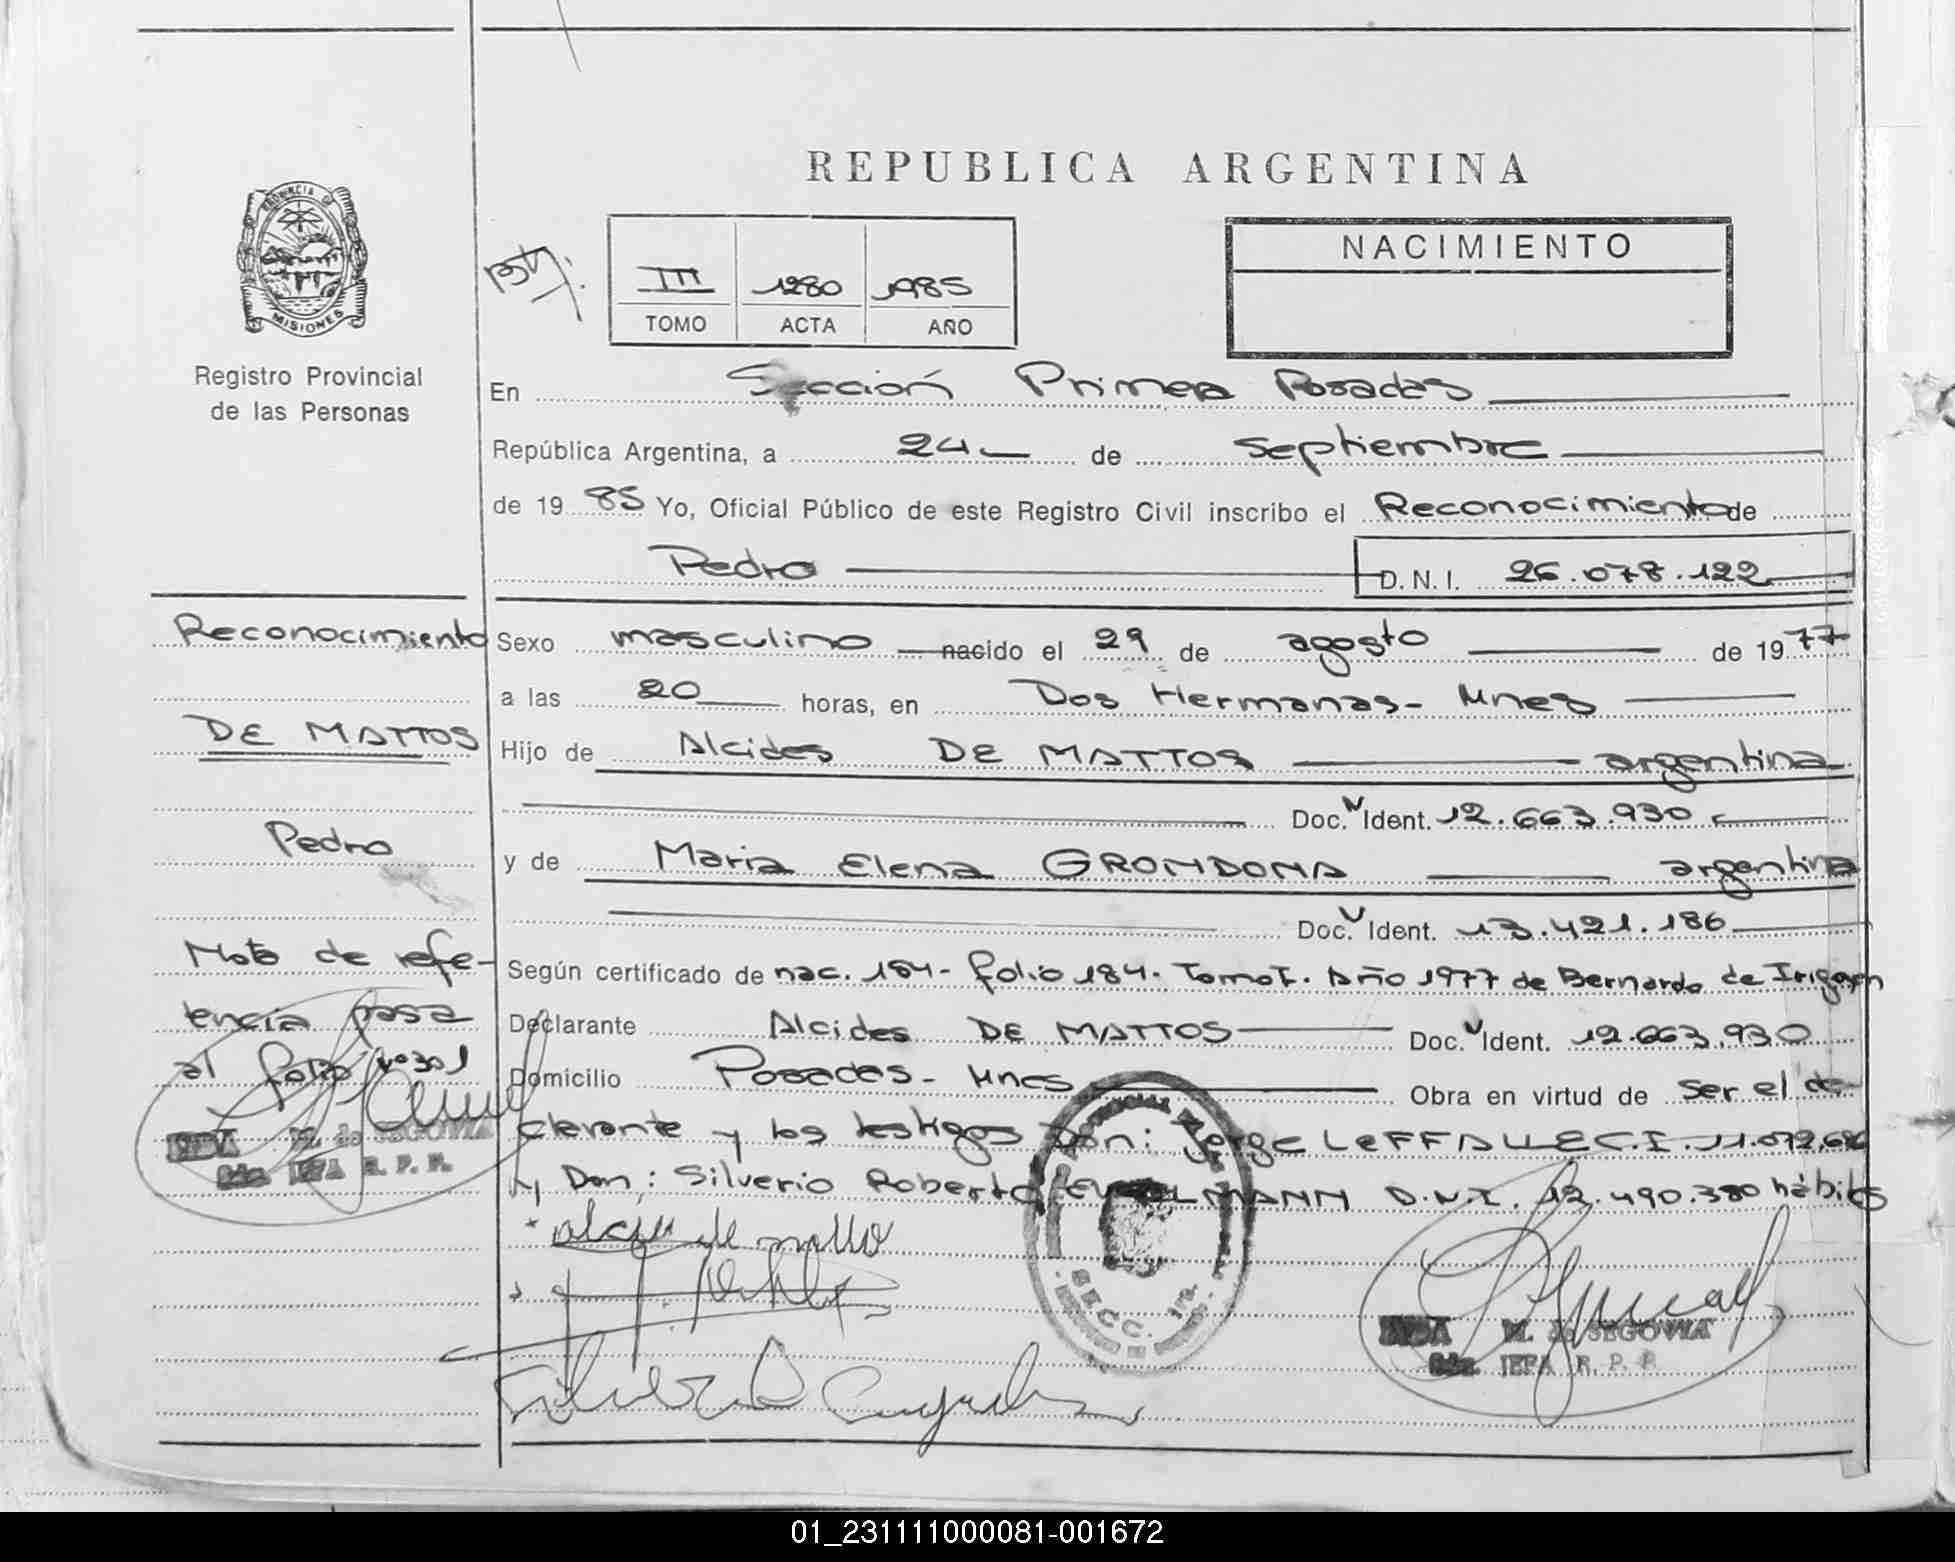 REPUBLICA ARGENTINA
PROVINCIA DE
MISIONES
Registro Provincial
de las Personas
III 1280 1985
TOMO ACTA AÑO
NACIMIENTO
En Sección Primera Posadas
República Argentina, a 24 de septiembre
de 1985 Yo, Oficial Público de este Registro Civil inscribo el Reconocimiento de
Pedro D.N.I. 26.078.122
Sexo masculino nacido el 29 de agosto de 1977
a las 20 horas, en Dos Hermanas- Mnes
Hijo de Alcides DE MATTOS argentina
Doc. Ident. 12.663.930
y de Maria Elena GRONDONA argentina
Doc. Ident. 13.421.186
Según certificado de nac. 184- folio 184- Tomo I. Año 1977 de Bernardo de Irigoyen
Declarante Alcides DE MATTOS Doc. Ident. 12.663.930
Domicilio Posadas- Mnes Obra en virtud de ser el de-
clarante y los testigos Don: Jorge LEFFALLE C.I. 11.072.686
y Don: Silverio Roberto D.N.I. 12.490.380 hábiles
Reconocimiento
DE MATTOS
Pedro
Nota de refe-
rencia pasa
al folio Nº 301
M. de SEGOVIA
Sdo. JEFA R. P. P.
SECC. 1ra.
M. de SEGOVIA
Sdo. JEFA R. P. P.
01_231111000081-001672